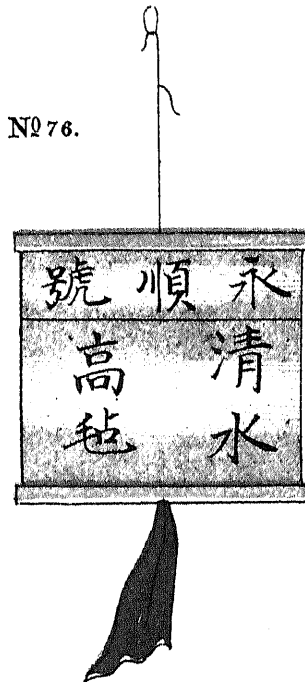 No 76.
永順號
清水
高毡